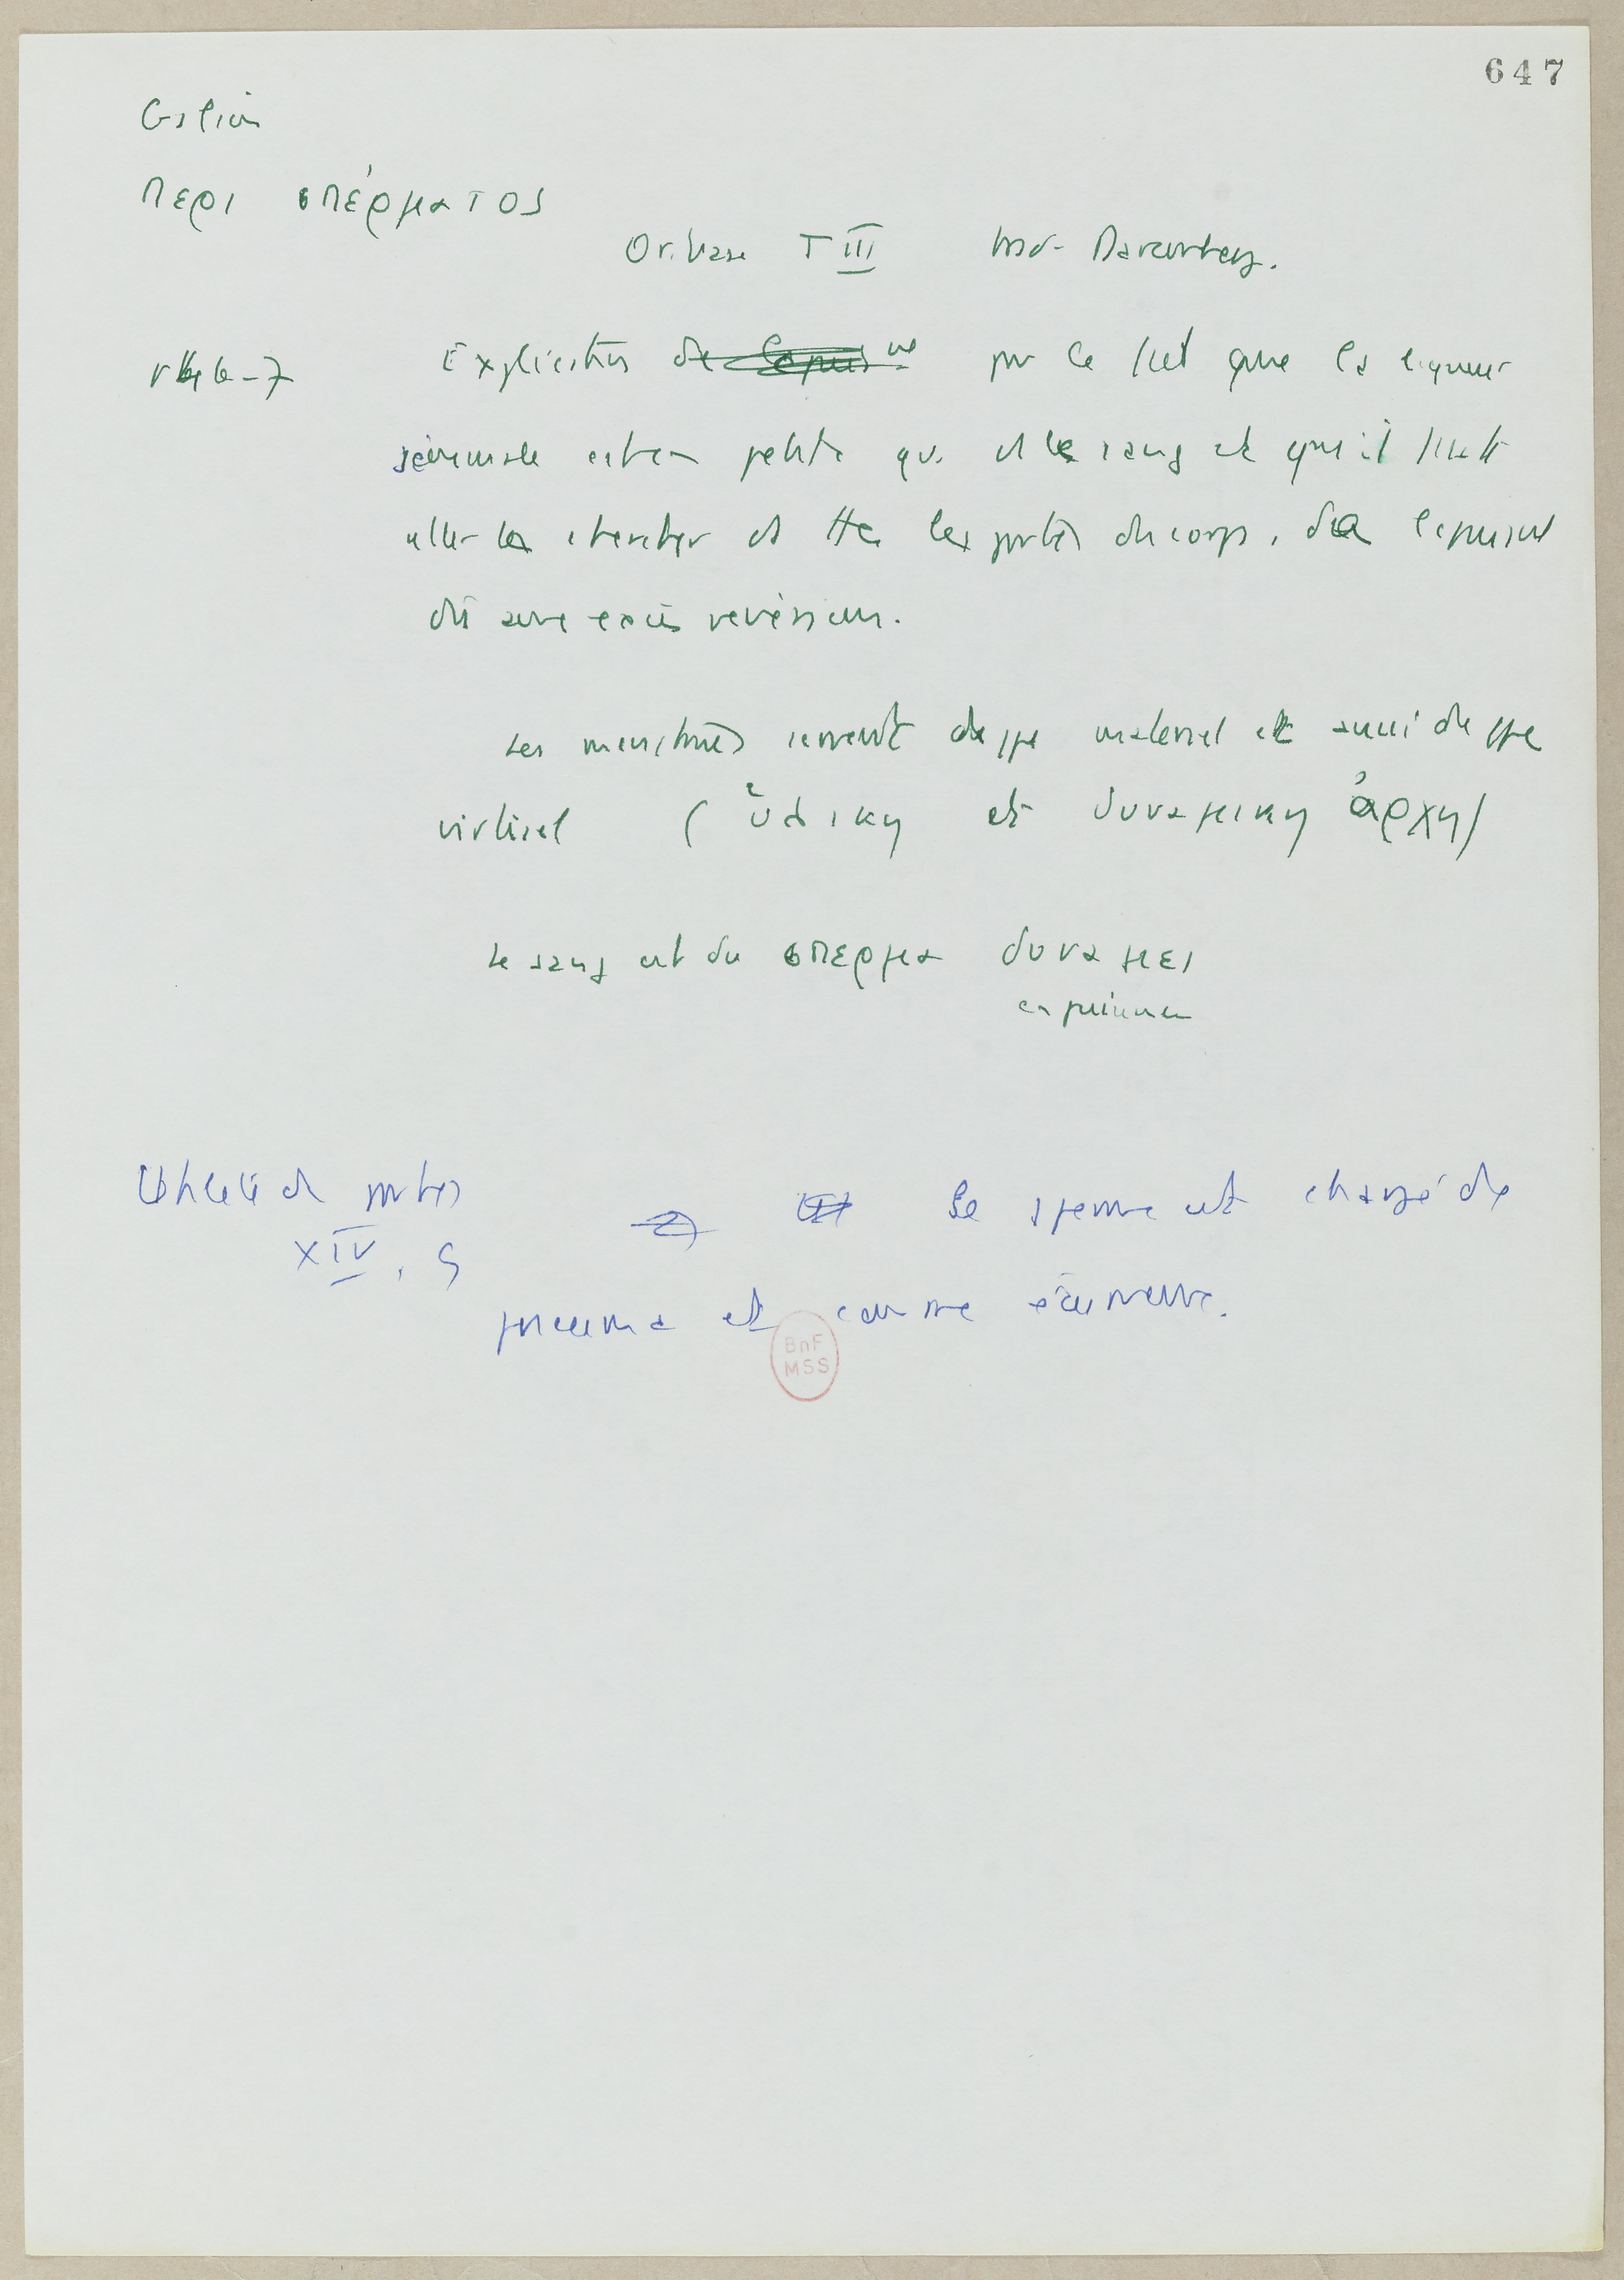 647
Galien
Περι σπέρματος
Oribase T III trad. Daremberg.
p 46-7
Explication par le fait que la liqueur
séminale est en petite qté ds le sang et qu'il faut
aller la chercher ds ttes les parties du corps, de l'épuisement
dû aux excès vénériens.
Les menstrues servent de ppe matériel et aussi de ppe
virtuel ( ὑλικη et δυναμικη ἀρχη)
Le sang est du σπερμα δυναμει
en puissance
Utilité des parties
XIV, 9
Le sperme est chargé de
pneuma et comme écumeux.
BnF
MSS